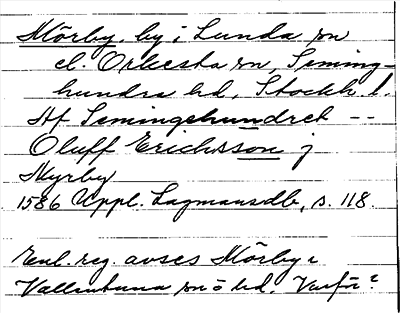 Mörby, by i Lunda sn
el. Orkesta sn, Seming-
hundra hd, Stockh. l.
Af Semingehundret --
Oluff Erichsson j
Myrby
1586 Uppl. Lagmansdb, s. 118.
Enl. reg. avses Mörby i
Vallentuna sn o hd. Varför?